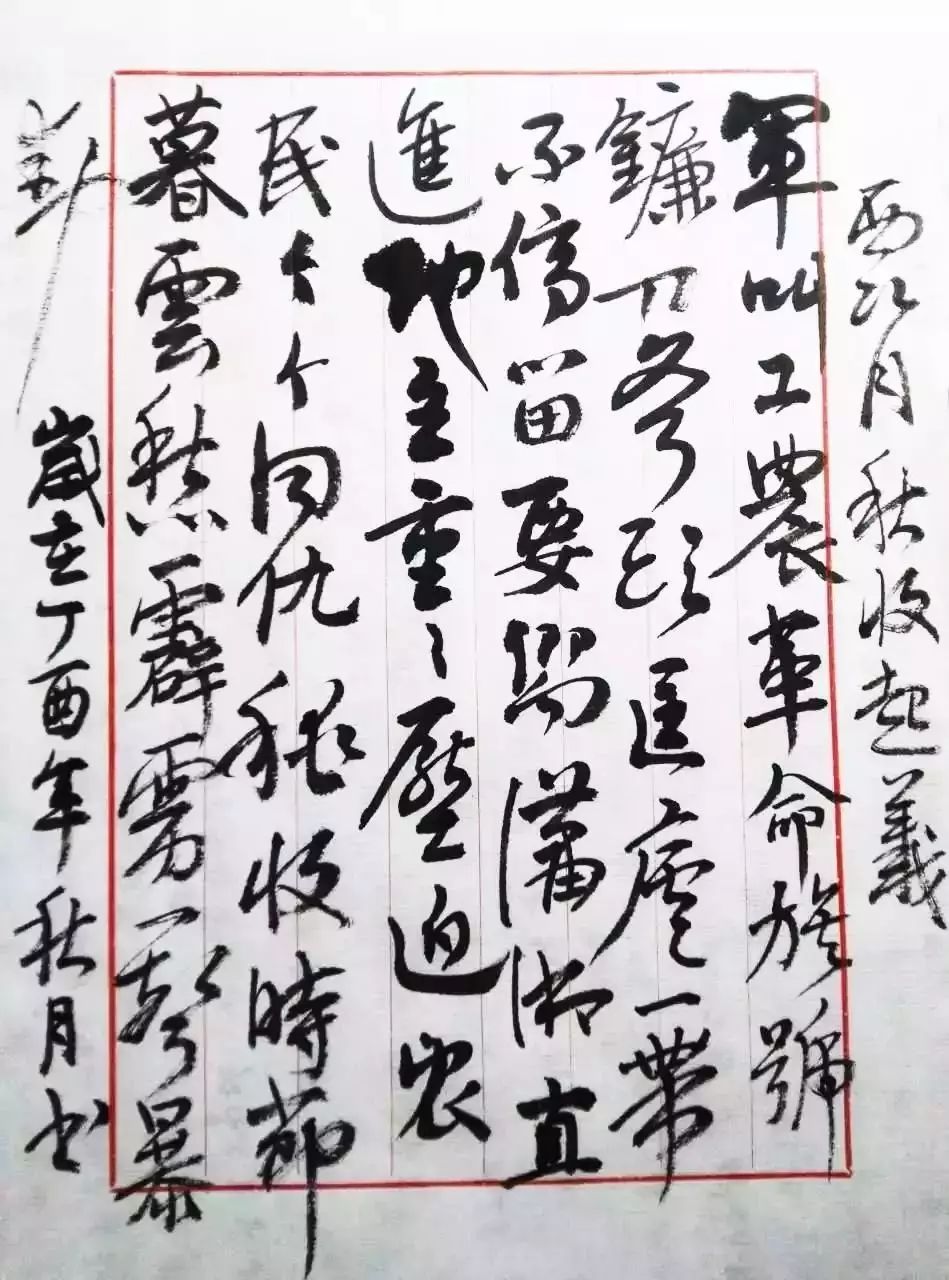 西江月 秋收起義
軍叫工農革命旗號
鐮刀斧頭匡廬一帶
不停留要瀟湘直
進地主重々壓迫農
民个个同仇秋收時節
暮雲愁霹靂一聲暴
歲在丁酉年秋月书